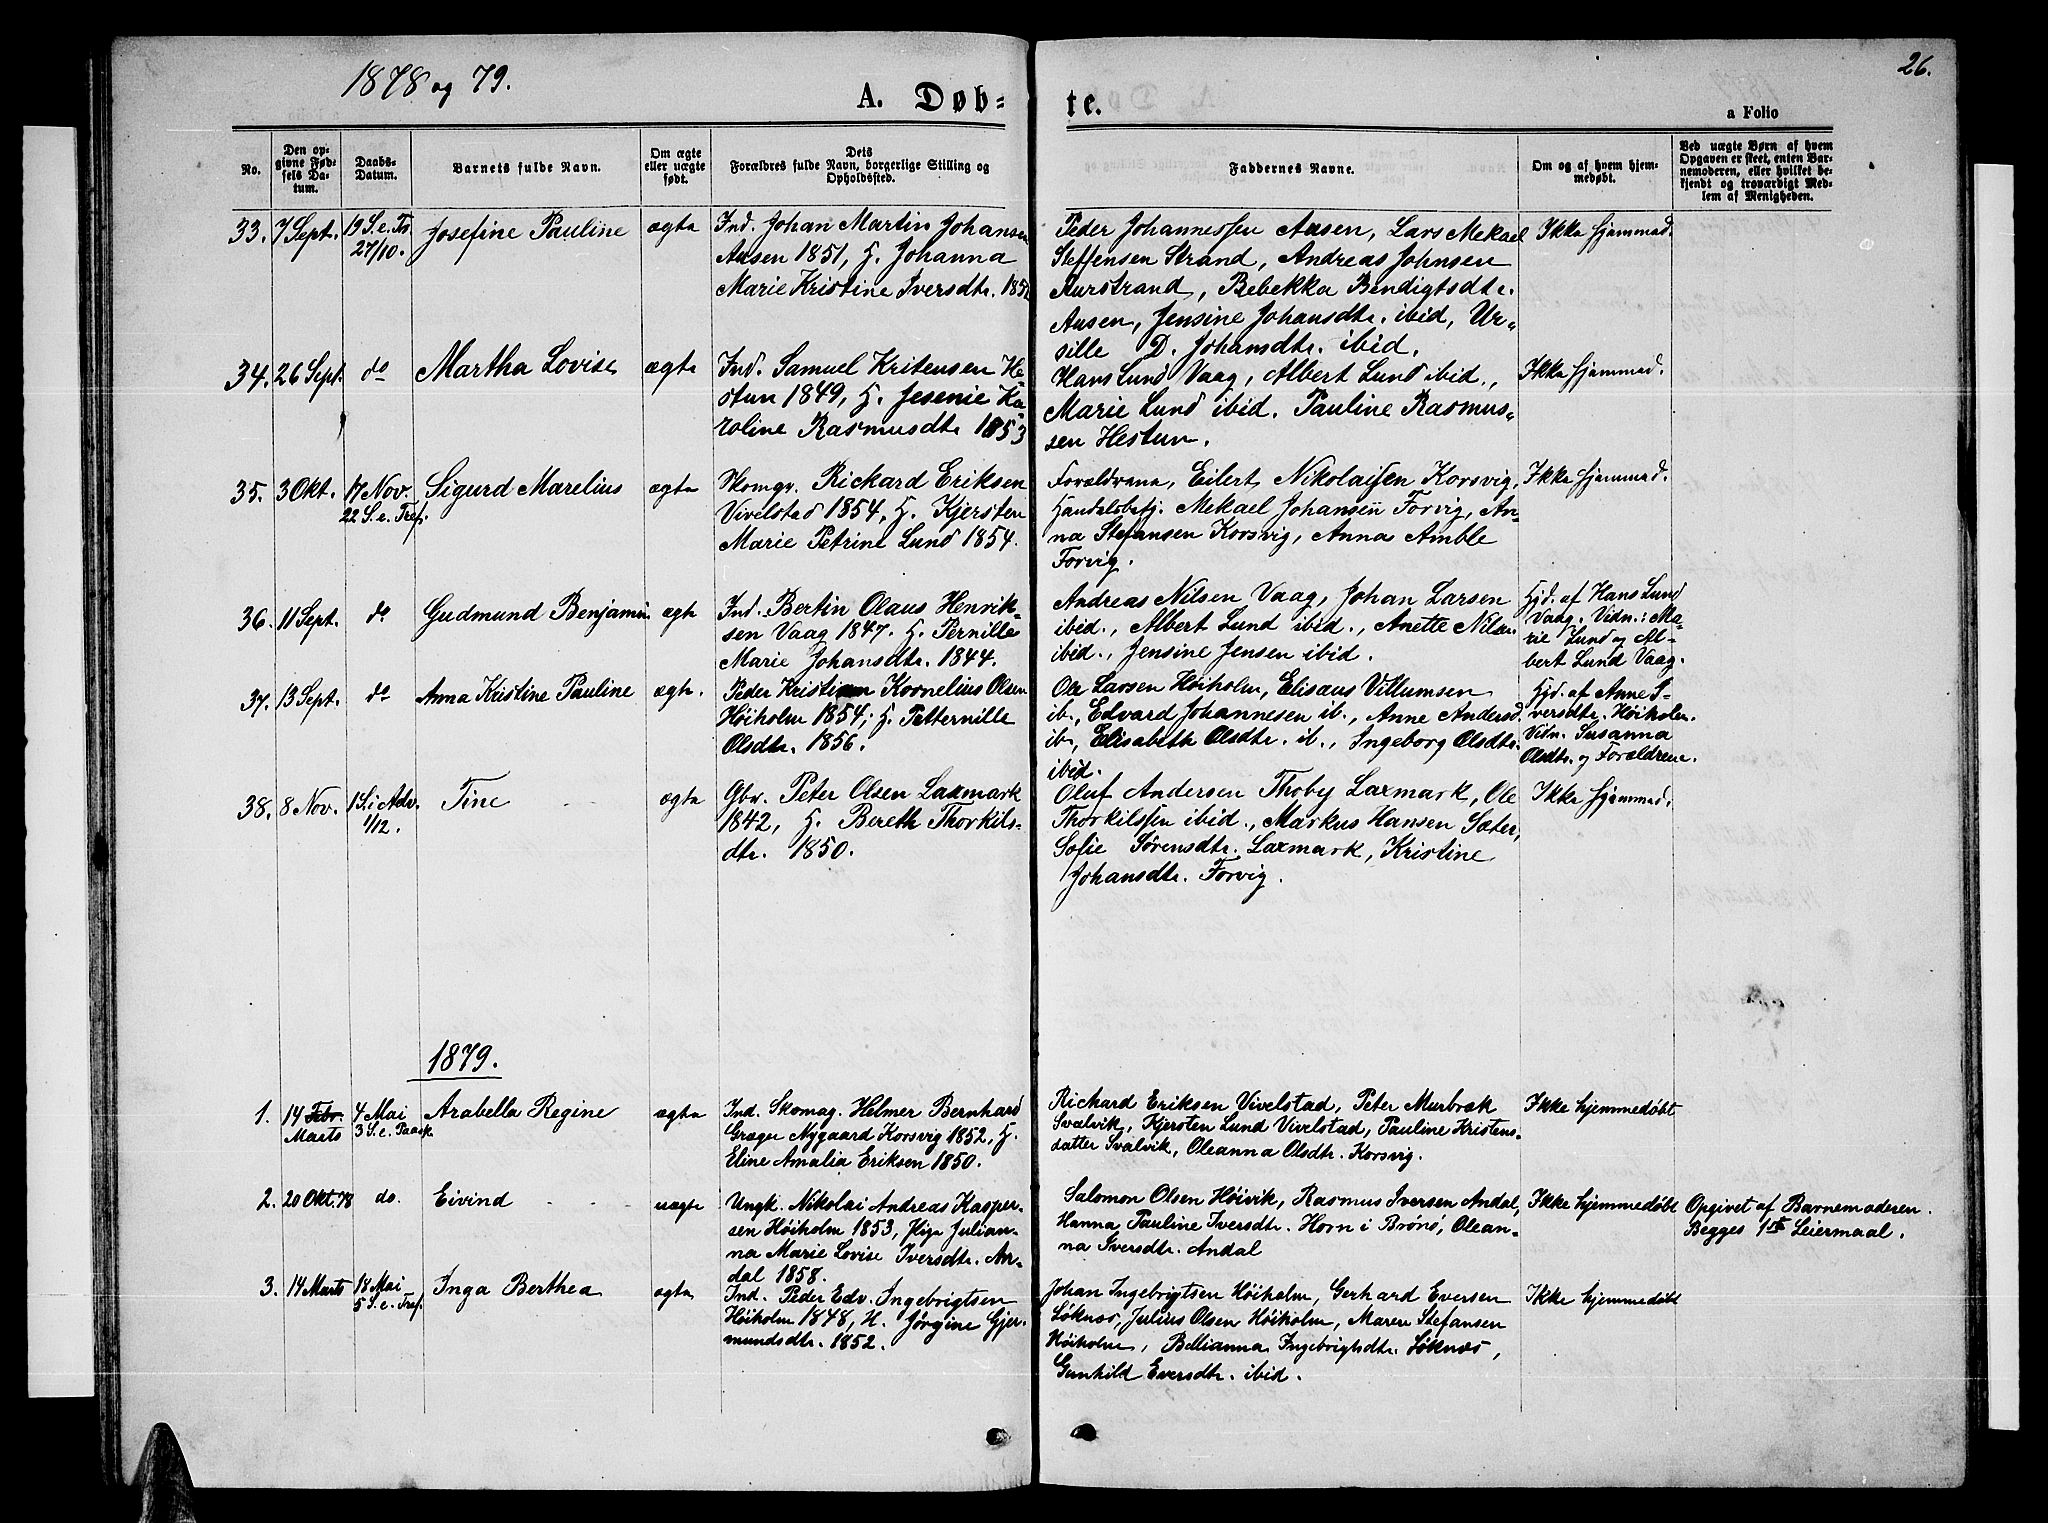 1878 og 79.
26.
A. Døb=
te.
a Folio
No.
Den op-
givne Fød-
sels Da-
tum.
Daabs-
Datum.
Barnets fulde Navn.
Om ægte
eller uægte
født.
Dets
Forældres fulde Navn, borgerlige Stilling og
Opholdssted.
Faddernes Navne.
Om og af hvem hjem-
medøbt.
Ved uægte Børn af hvem
Opgaven er skeet, enten Bar-
nemoderen, eller hvilket be-
kjendt og troværdigt Med-
lem af Menigheden.
33. 7 Sept. 19 S. e. Tr.
27/10.
Josefine Pauline
ægte
Ind. Johan Martin Johansen
Ausen 1851, H. Johanna
Marie Kristine Iversdtr. 1852
Peder Johannessen Ausen, Lars Mekael
Steffensen Strand, Andreas Johnsen
Aurstrand, Bebekka Bendigtsdtr.
Ausen, Jensine Johansdtr. ibid, Ur-
sille D. Johansdtr. ibid.
Ikke hjemmed.
34. 26 Sept. do
Martha Lovise
ægte
Ind. Samuel Kritensen He-
stun 1849, H. Jesenie Ka-
roline Rasmusdtr 1853
Hans Lund Vaag, Albert Lund ibid.,
Marie Lund ibid. Pauline Rasmus-
sen Hestun.
Ikke hjemmed.
35. 3 Okt. 17 Nov.
22 S. e. Tref.
Sigurd Marelius
ægte
Skomgr. Rickard Eriksen
Vivelstad 1854, H. Kjersten
Marie Petrine Lund 1854.
Forældrene, Eilert Nikolaisen Korsvig,
Handelsbetj. Mekael Johansen Forvig, An-
na Stefansen Korsvig, Anna Amble
Forvig.
Ikke hjemmed.
36. 11 Sept. do
Gudmund Benjamin
ægte
Ind. Bertin Olaus Henrik-
sen Vaag 1847. H. Pernille
Marie Johansdtr. 1844.
Andreas Nilsen Vaag, Johan Larsen
ibid., Albert Lund ibid., Anette Nilsen
ibid., Jensine Jensen ibid.
Hjd. af Hans Lund
Vaag. Vidn.: Ma-
rie Lund og Al-
bert Lund Vaag.
37. 13 Sept. do
Anna Kristine Pauline
ægte.
Peder Kristian Kornelius Olsen
Høiholm 1854; H. Petternille
Olsdtr. 1856.
Ole Larsen Høiholm, Elisæus Villumsen
ib., Edvard Johannesen ib., Anne Andersd.
ib., Elisabeth Olsdtr. ib., Ingeborg Olsdtr.
ibid.
Hjd. af Anne S-
versdtr. Høiholm.
Vidn. Susanna
Olsdtr. og Forældrene.
38. 8 Nov. 1 S. i Adv.
1/12.
Tine
ægte
Gbr. Peter Olsen Laxmark
1842, H. Bereth Thorkils-
dtr. 1850.
Oluf Andersen Thoby Laxmark, Ole
Thorkilssen ibid., Markus Hansen Sæter,
Sofie Sørensdtr. Laxmark, Kristine
Johansdtr. Forvig.
Ikke hjemmed.
1879.
1. 14 Febr.
Marts
4 Mai
3 S. e. Paask.
Arabella Regine
ægte
Ind. Skomag. Helmer Bernhard
Græger Nygaard Korsvig 1852, H.
Eline Amalia Eriksen 1850.
Richard Eriksen Vivelstad, Peter Murbræk
Svalvik, Kjersten Lund Vivelstad, Pauline Kristens-
datter Svalvik, Oleanna Olsdtr. Korsvig.
Ikke hjemmedøbt
2. 20 Okt. 78 do.
Eivind
uægte
Ungk. Nikolai Andreas Kasper-
sen Høiholm 1853, Pige Julian-
na Marie Lovise Iversdtr. An-
dal 1858.
Salomon Olsen Høivik, Rasmus Iversen Andal,
Hanna Pauline Iversdtr. Horn i Brønø, Olean-
na Iversdtr. Andal
Ikke hjemmedøbt
Opgivet af Barnemoderen.
Begges 1ste Leiermaal.
3. 14 Marts 18 Mai
5 S. e. Tref.
Inga Berthea
ægte
Ind. Peder Edv. Ingebrigtsen
Høiholm 1848, H. Jørgine Gjer-
mundsdtr. 1852.
Johan Ingebrigtsen Høiholm, Gerhard Eversen
Søknæs, Julius Olsen Høiholm, Maren Stefansen
Høiholm, Bellianna Ingebrigtsdtr. Søknæs,
Gunhild Eversdtr. ibid.
Ikke hjemmedøbt